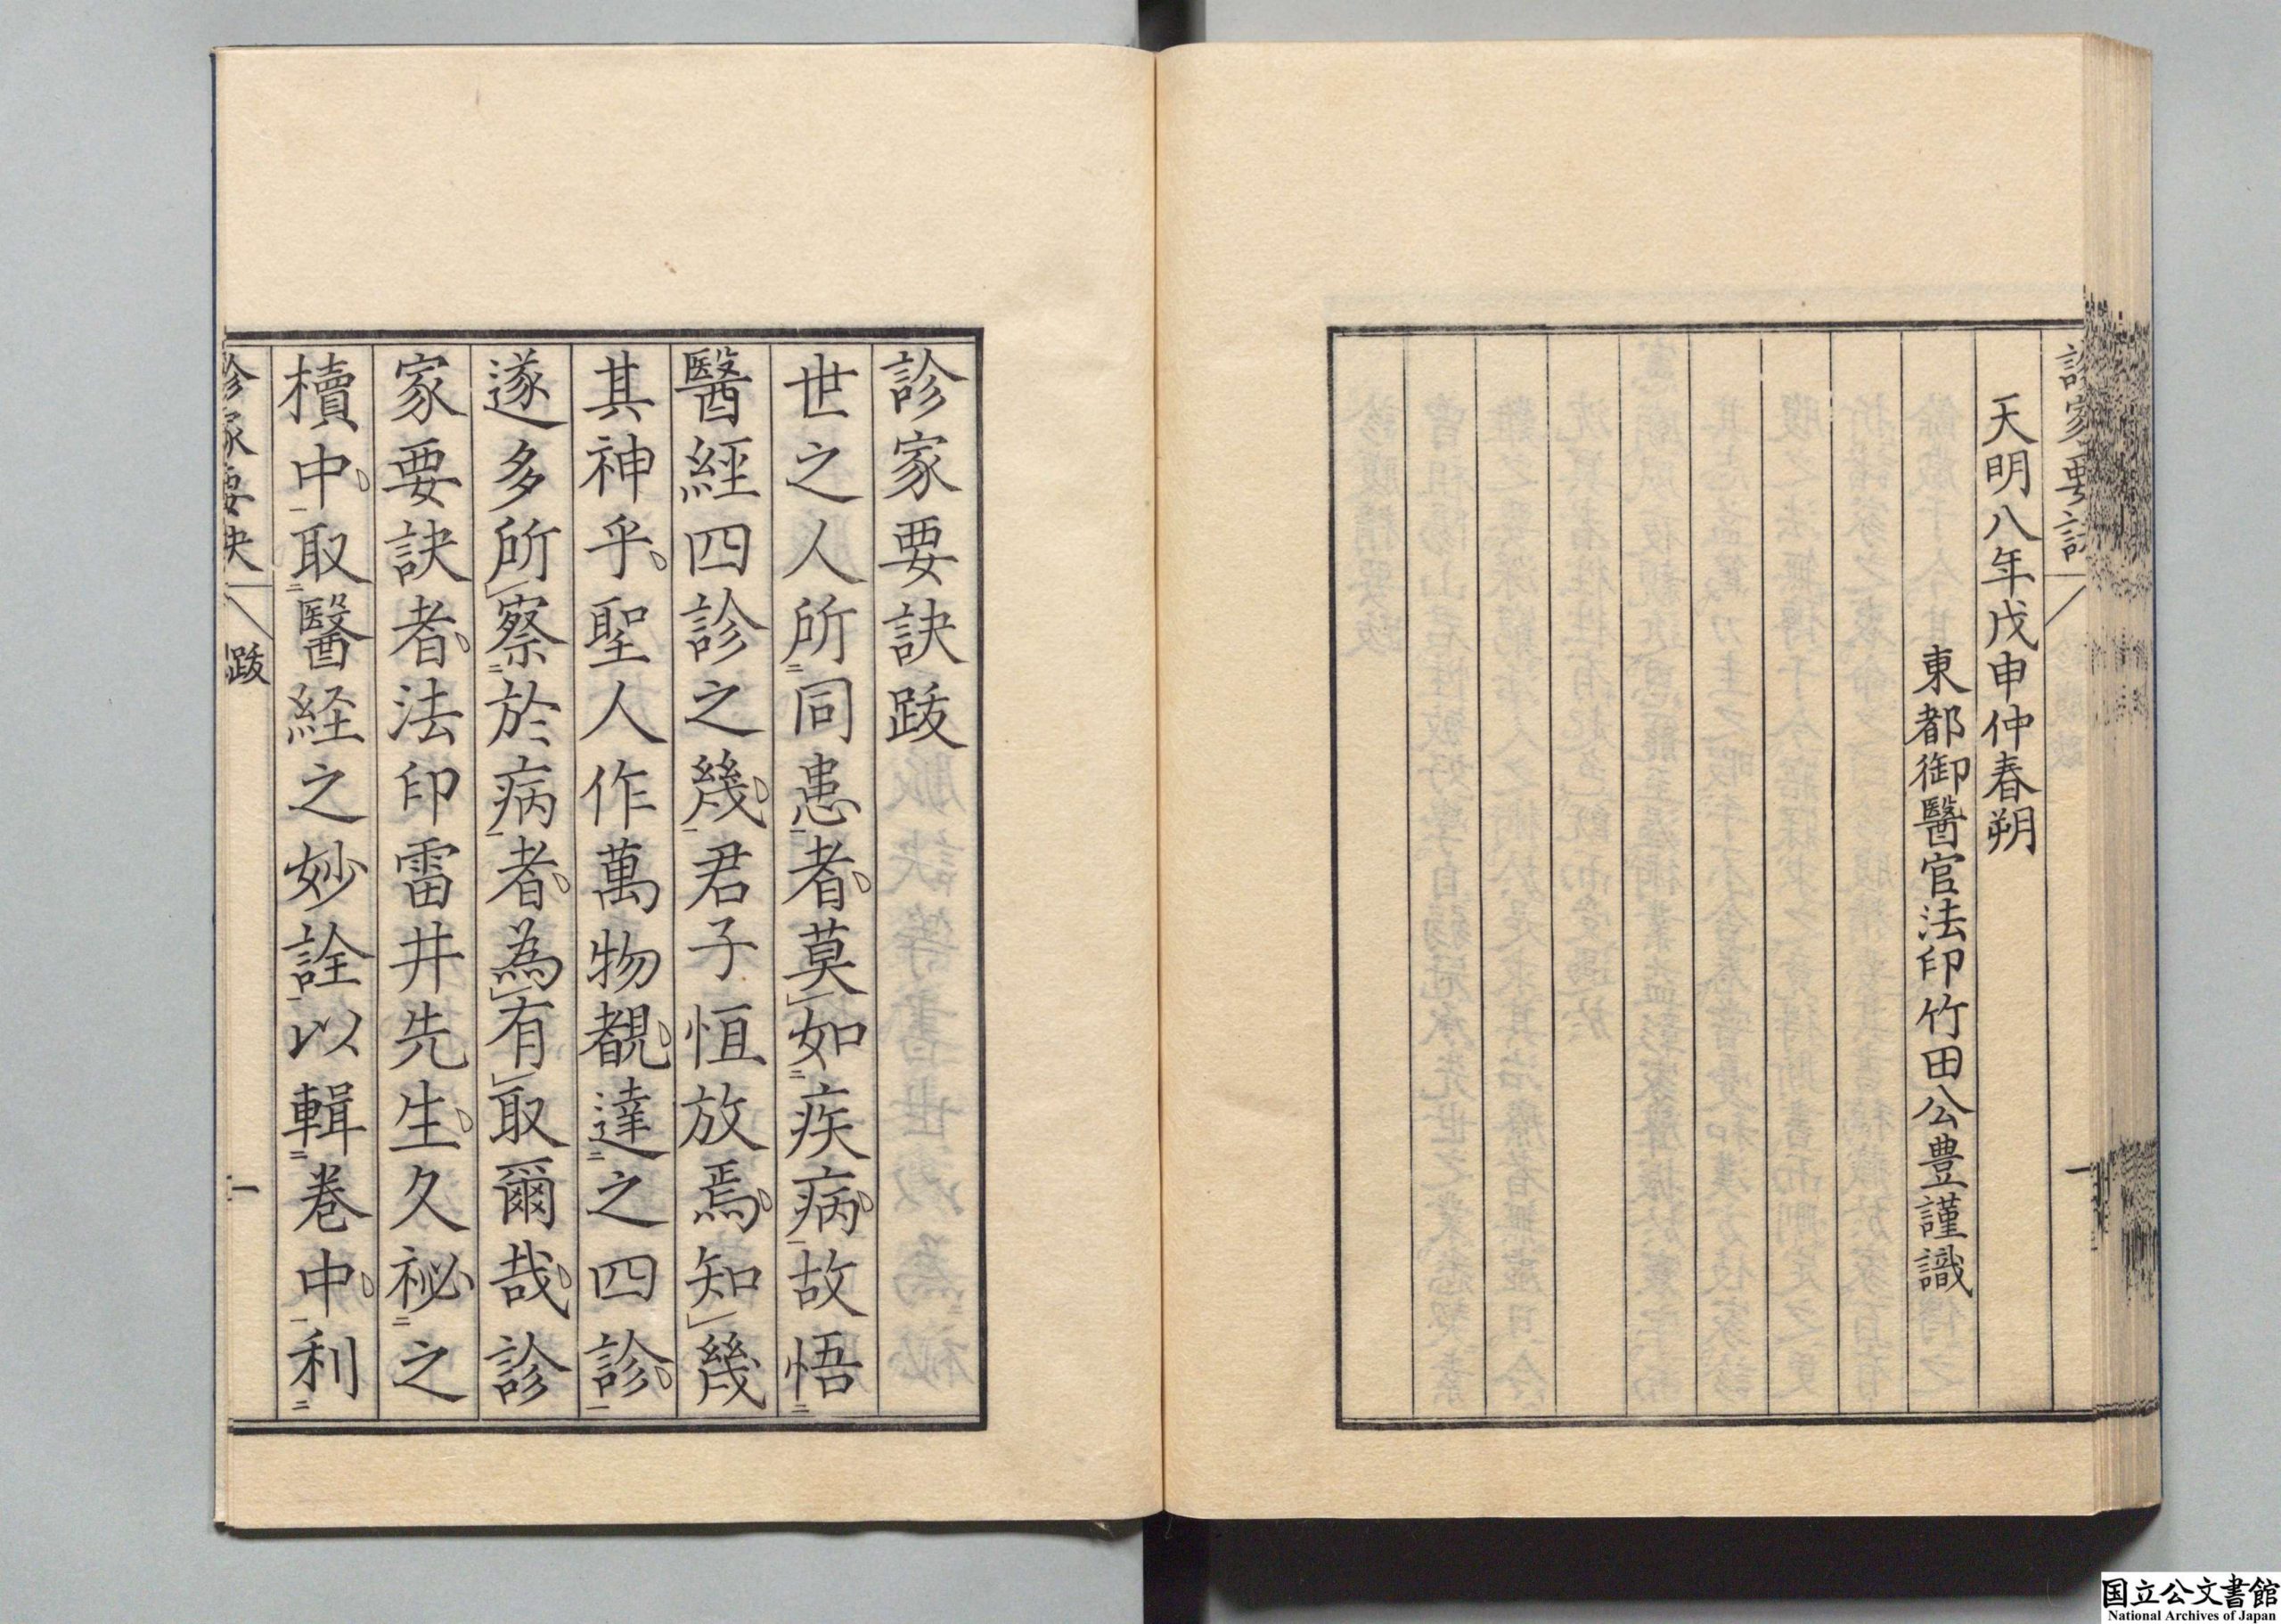 天明八年戊申仲春朔
東都御醫官法印竹田公豊謹識
診家要訣跋
世之人所同患者莫如疾病故悟
醫經四診之幾君子恒放焉知幾
其神乎聖人作萬物覩達之四診
遂多所察於病者為有取爾哉診
家要訣者法印雷井先生久祕之
櫝中取醫経之妙詮以輯巻中利
診家要訣
跋
一
国立公文書館
National Archives of Japan